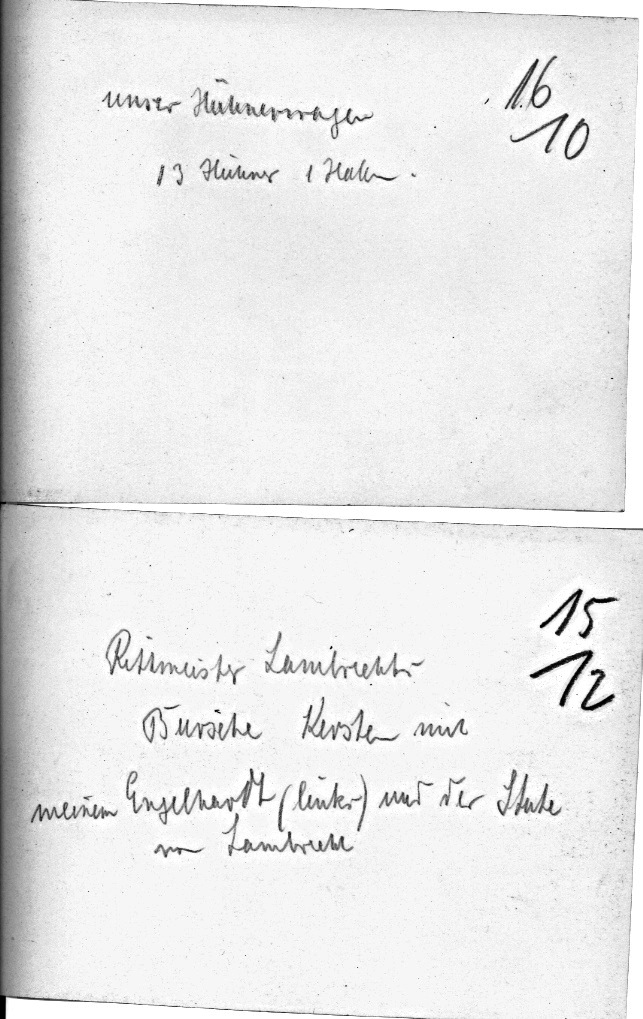 unser Hühnerwagen
16
10
13 Hühner 1 Hahn.
15
12
Rittmeister Lambrechts
Bursche Kersten mit
meinem Engelhardt (links) und der Stute
von Lambrecht